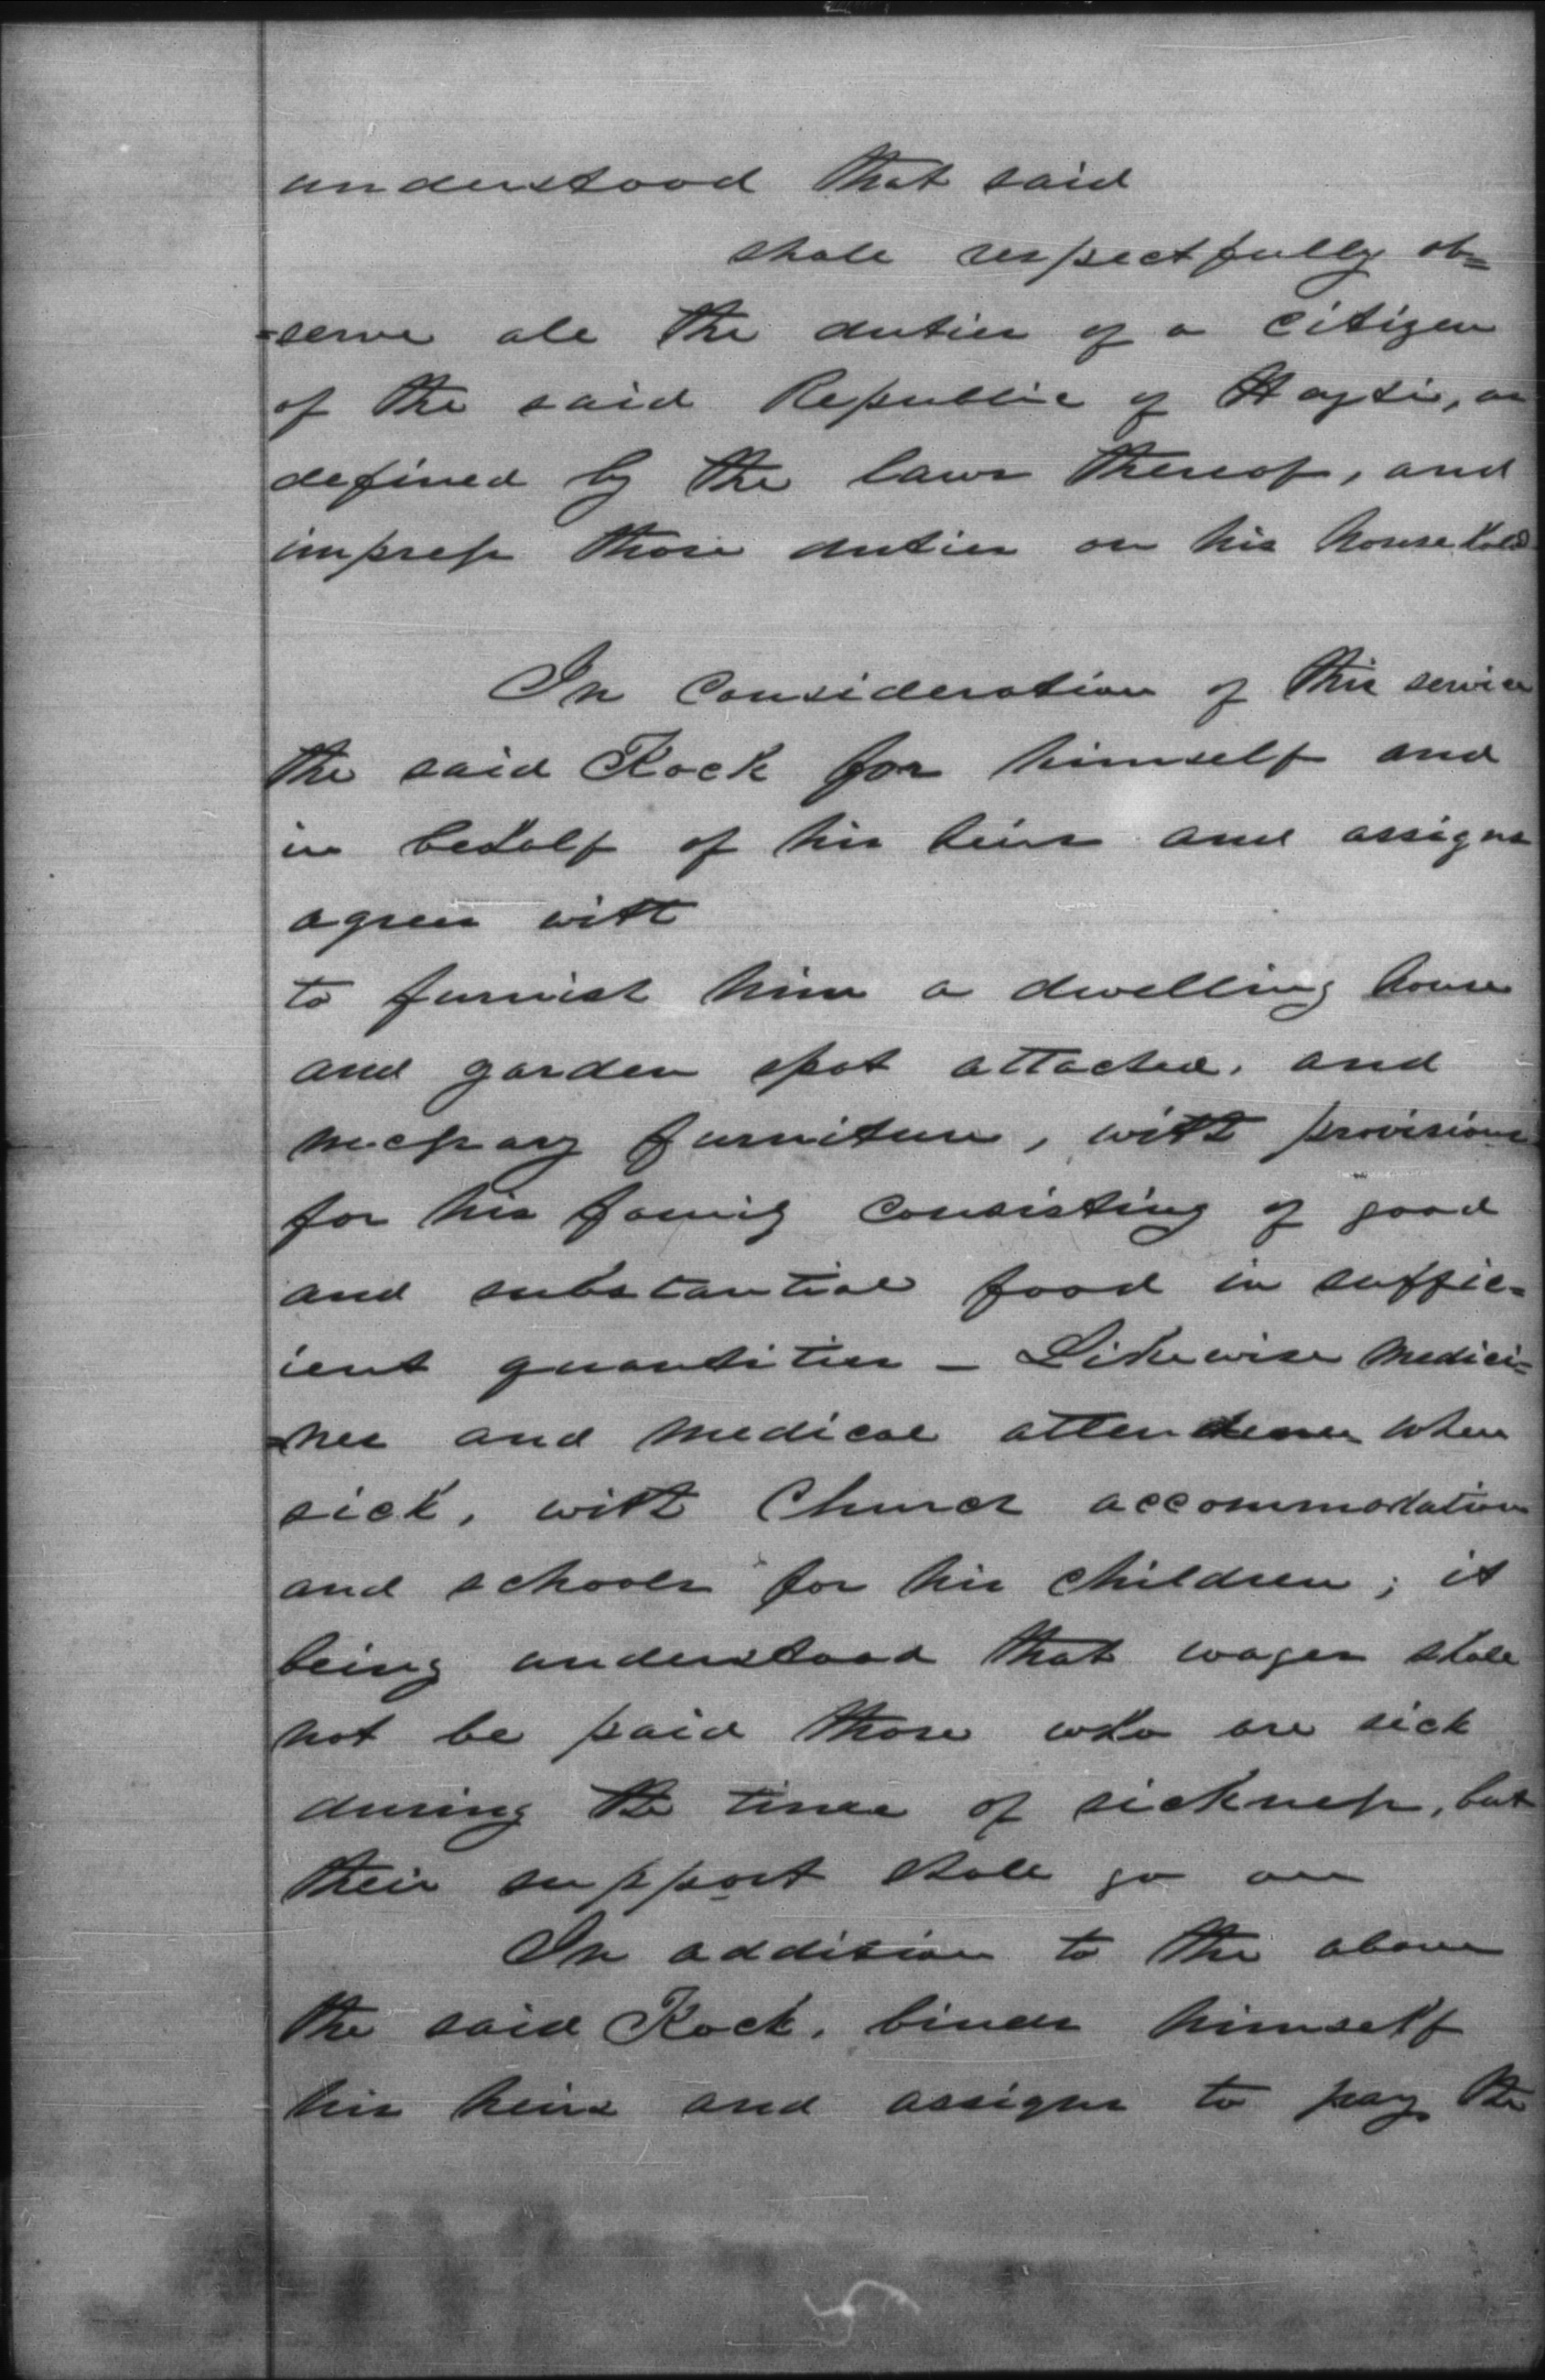 understood that said
shall respectfully ob=
=serve all the duties of a citizen
of the said Republic of Hayti, as
defined by the laws thereof, and
impress those duties on his household
In consideration of this service
the said Kock for himself and
in behalf of his heirs and assigns
agrees with
to furnish him a dwelling house
and garden spot attached, and
necessary furniture, with provisions
for his family consisting of good
and substantial food in suffic=
ient quantities - Likewise medici=
=nes and medical attendence when
sick, with Church accommodation
and schools for his children; it
being understood that wages shall
not be paid those who are sick
during the time of sickness, but
their support shall go on
In addition to the above
the said Kock, binds himself
his heirs and assigns to pay the